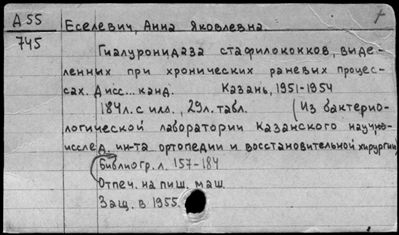 Д 55
745
Еселевич, Анна Яковлевна.
Гиалуронидаза стафилококков, выде-
ленных при хронических раневых процес-
сах. Дисс... канд. Казань, 1951-1954
184 л. с илл., 29 л. табл. (Из бактерио-
логической лаборатории Казанского научно-
исслед. ин-та ортопедии и восстановительной хирургии)
Библиогр. л. 157-184
Отпеч. на пиш. маш.
Защ. в 1955.